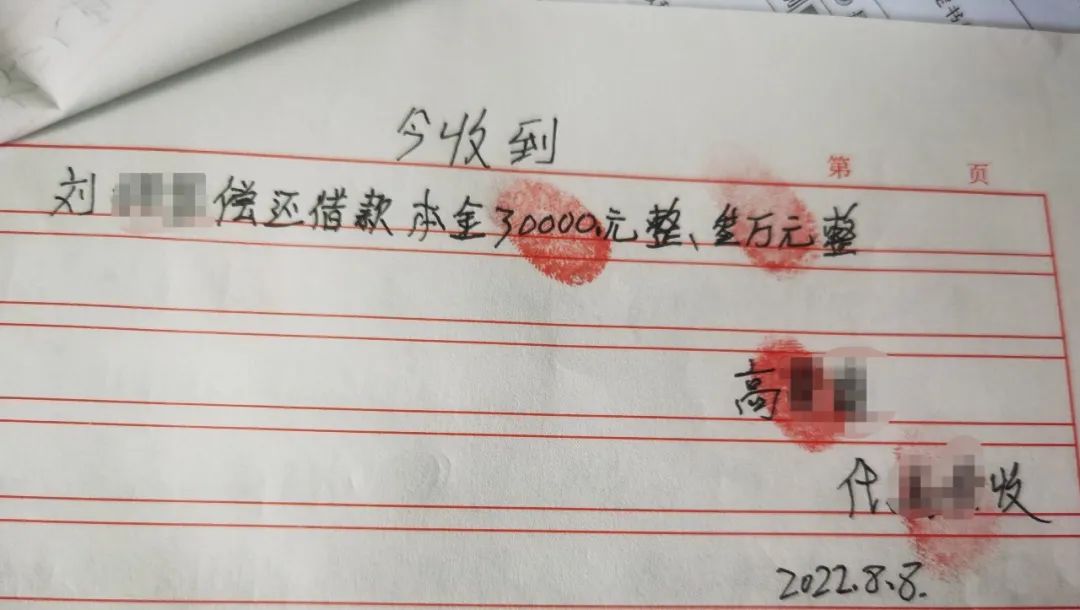 今收到
第 页
刘 偿还借款本金30000.元整、叁万元整
高
代、 收
2022.8.8.